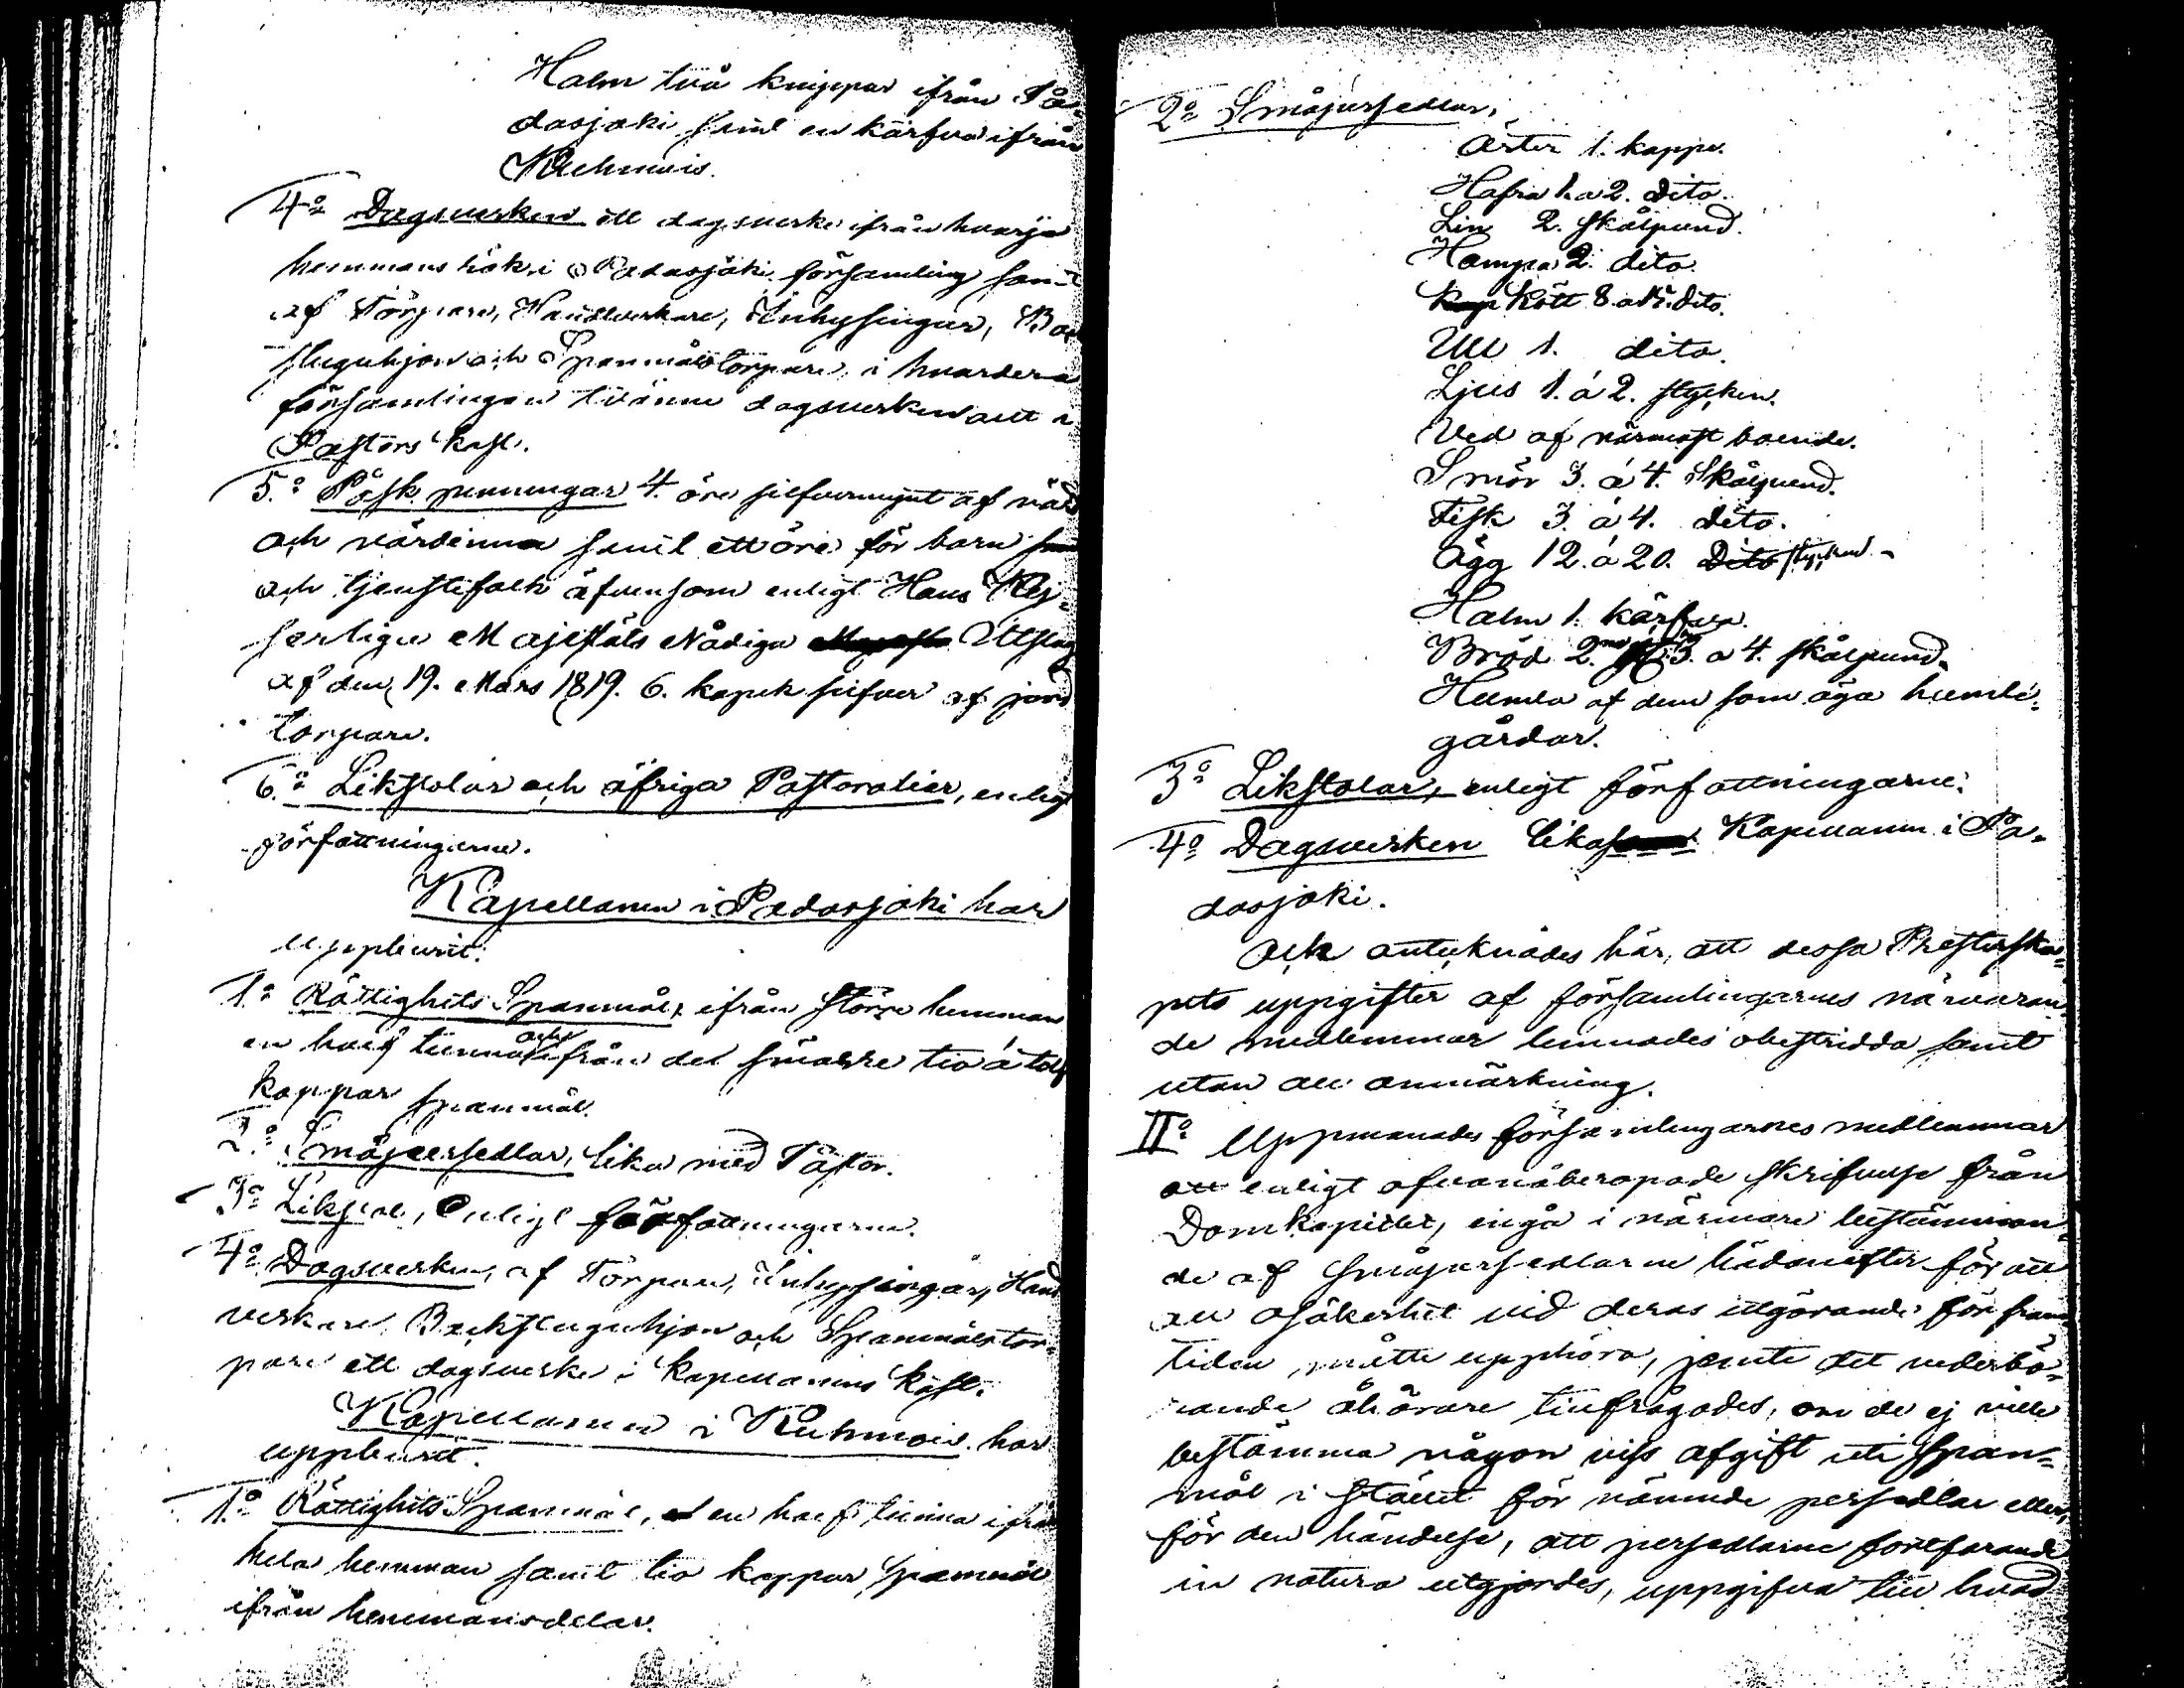 Halm två knippor ifrån Pa-
dasjoki samt en kärfva ifrån
Kuhmois.
4:o Dagsverken ett dagsverke ifrån hvarje
hemmans rök i Padasjoki församling samt
af Torpare, Handtverkare, Inhysingar, Back
stuguhjon och Spanmålstorpare i hvardera
församlingen tvänne dagsverken allt i
Pastors kost.
5:o Påsk penningar 4. öre silfvermynt af värd
och värdinna samt ett öre för barn
och tjenstefolk äfvensom enligt Hans Kej-
serliga Majestäts Nådiga Utslag
af den 19. Mars 1819. 6. kopek silfver af jord
torpare.
6:o Likstolar och öfriga Pastoralier, enligt
författningarne.
Kapellanen i Padasjoki har
uppburit.
1:o Rättighets Spanmål, ifrån större hemman
en half tunna och ifrån det smärre tio à tolf
kappar spanmål.
2:o Småpersedlar, lika med Pastor.
3:o Likstol, Enligt författningarna.
4:o Dagsverken, af Torpare, Inhysingar, Hand
verkare, Backstuguhjon och Spanmålstor-
pare ett dagsverke i Kapellanens kost.
Kapellanen i Kuhmois har
uppburit.
1:o Rättighets Spanmål, en half tunna ifrån
hela hemman samt tio kappar spanmål
ifrån hemmansdelar.
2:o Småpersedlar,
Ärter 1. kappe.
Hafra 1. a 2. dito.
Lin 2. skålpund.
Hampa 2. dito.
Kött 8. a dito.
Ull 1. dito.
Ljus 1. à 2. stycken.
Ved af närmast boende.
Smör 3. à 4. Skålpund.
Fisk 3. à 4. dito.
Ägg 12. à 20. Dito stycken
Halm 1. kärfva.
Bröd 2. 3. a 4. skålpund.
Humla af dem som äga humle-
gårdar.
3:o Likstolar, enligt författningarne.
4:o Dagsverken lika Kapellanen i Pa-
dasjoki.
Och antecknades här, att dessa Presterska-
pets uppgifter af församlingarnes närvaran-
de medlemmar lemnades obestridda samt
utan all anmärkning.
II:o Uppmanades församlingarnes medlemmar
att enligt ofvanåberopade skrifvelse från
Domkapitlet, ingå i närmare bestämman-
de af småpersedlarne hädanefter för att
all osäkerhet vid deras utgörande för fram
tiden måtte upphöra, jemte det vederbö-
rande åhörare tillfrågades, om de ej ville
bestämma någon viss afgift uti span-
mål i stället för nämnde persedlar eller,
för den händelse, att persedlarne fortfarande
in natura utgjordes, uppgifva till hvad